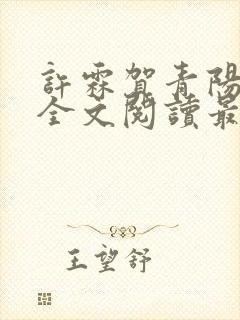 許霖賀青陽
全文閱讀最
王望舒